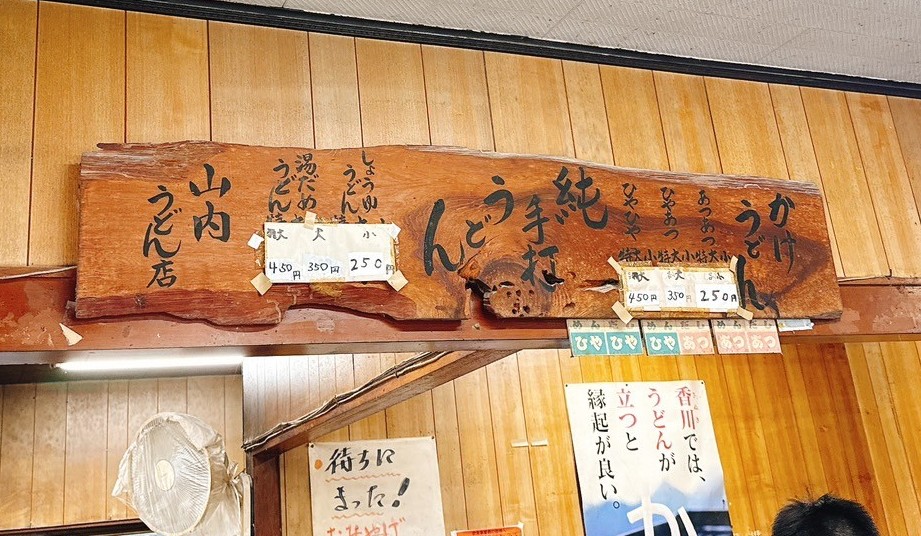 かけ
うどん
あつあつ
ひやあつ
ひやひや
小
大
特大
小
大
特大
小
大
特大
特大 大 小
450円 350円 250円
純
手打
うどん
しょうゆ
うどん
湯だめ
うどん
特大 大 小
450円 350円 250円
山内
うどん店
めん だし
ひや ひや
めん だし
ひや あつ
めん だし
あつ あつ
香川では、
うどんが
立つと
縁起が良い。
か
待ちに
まった!